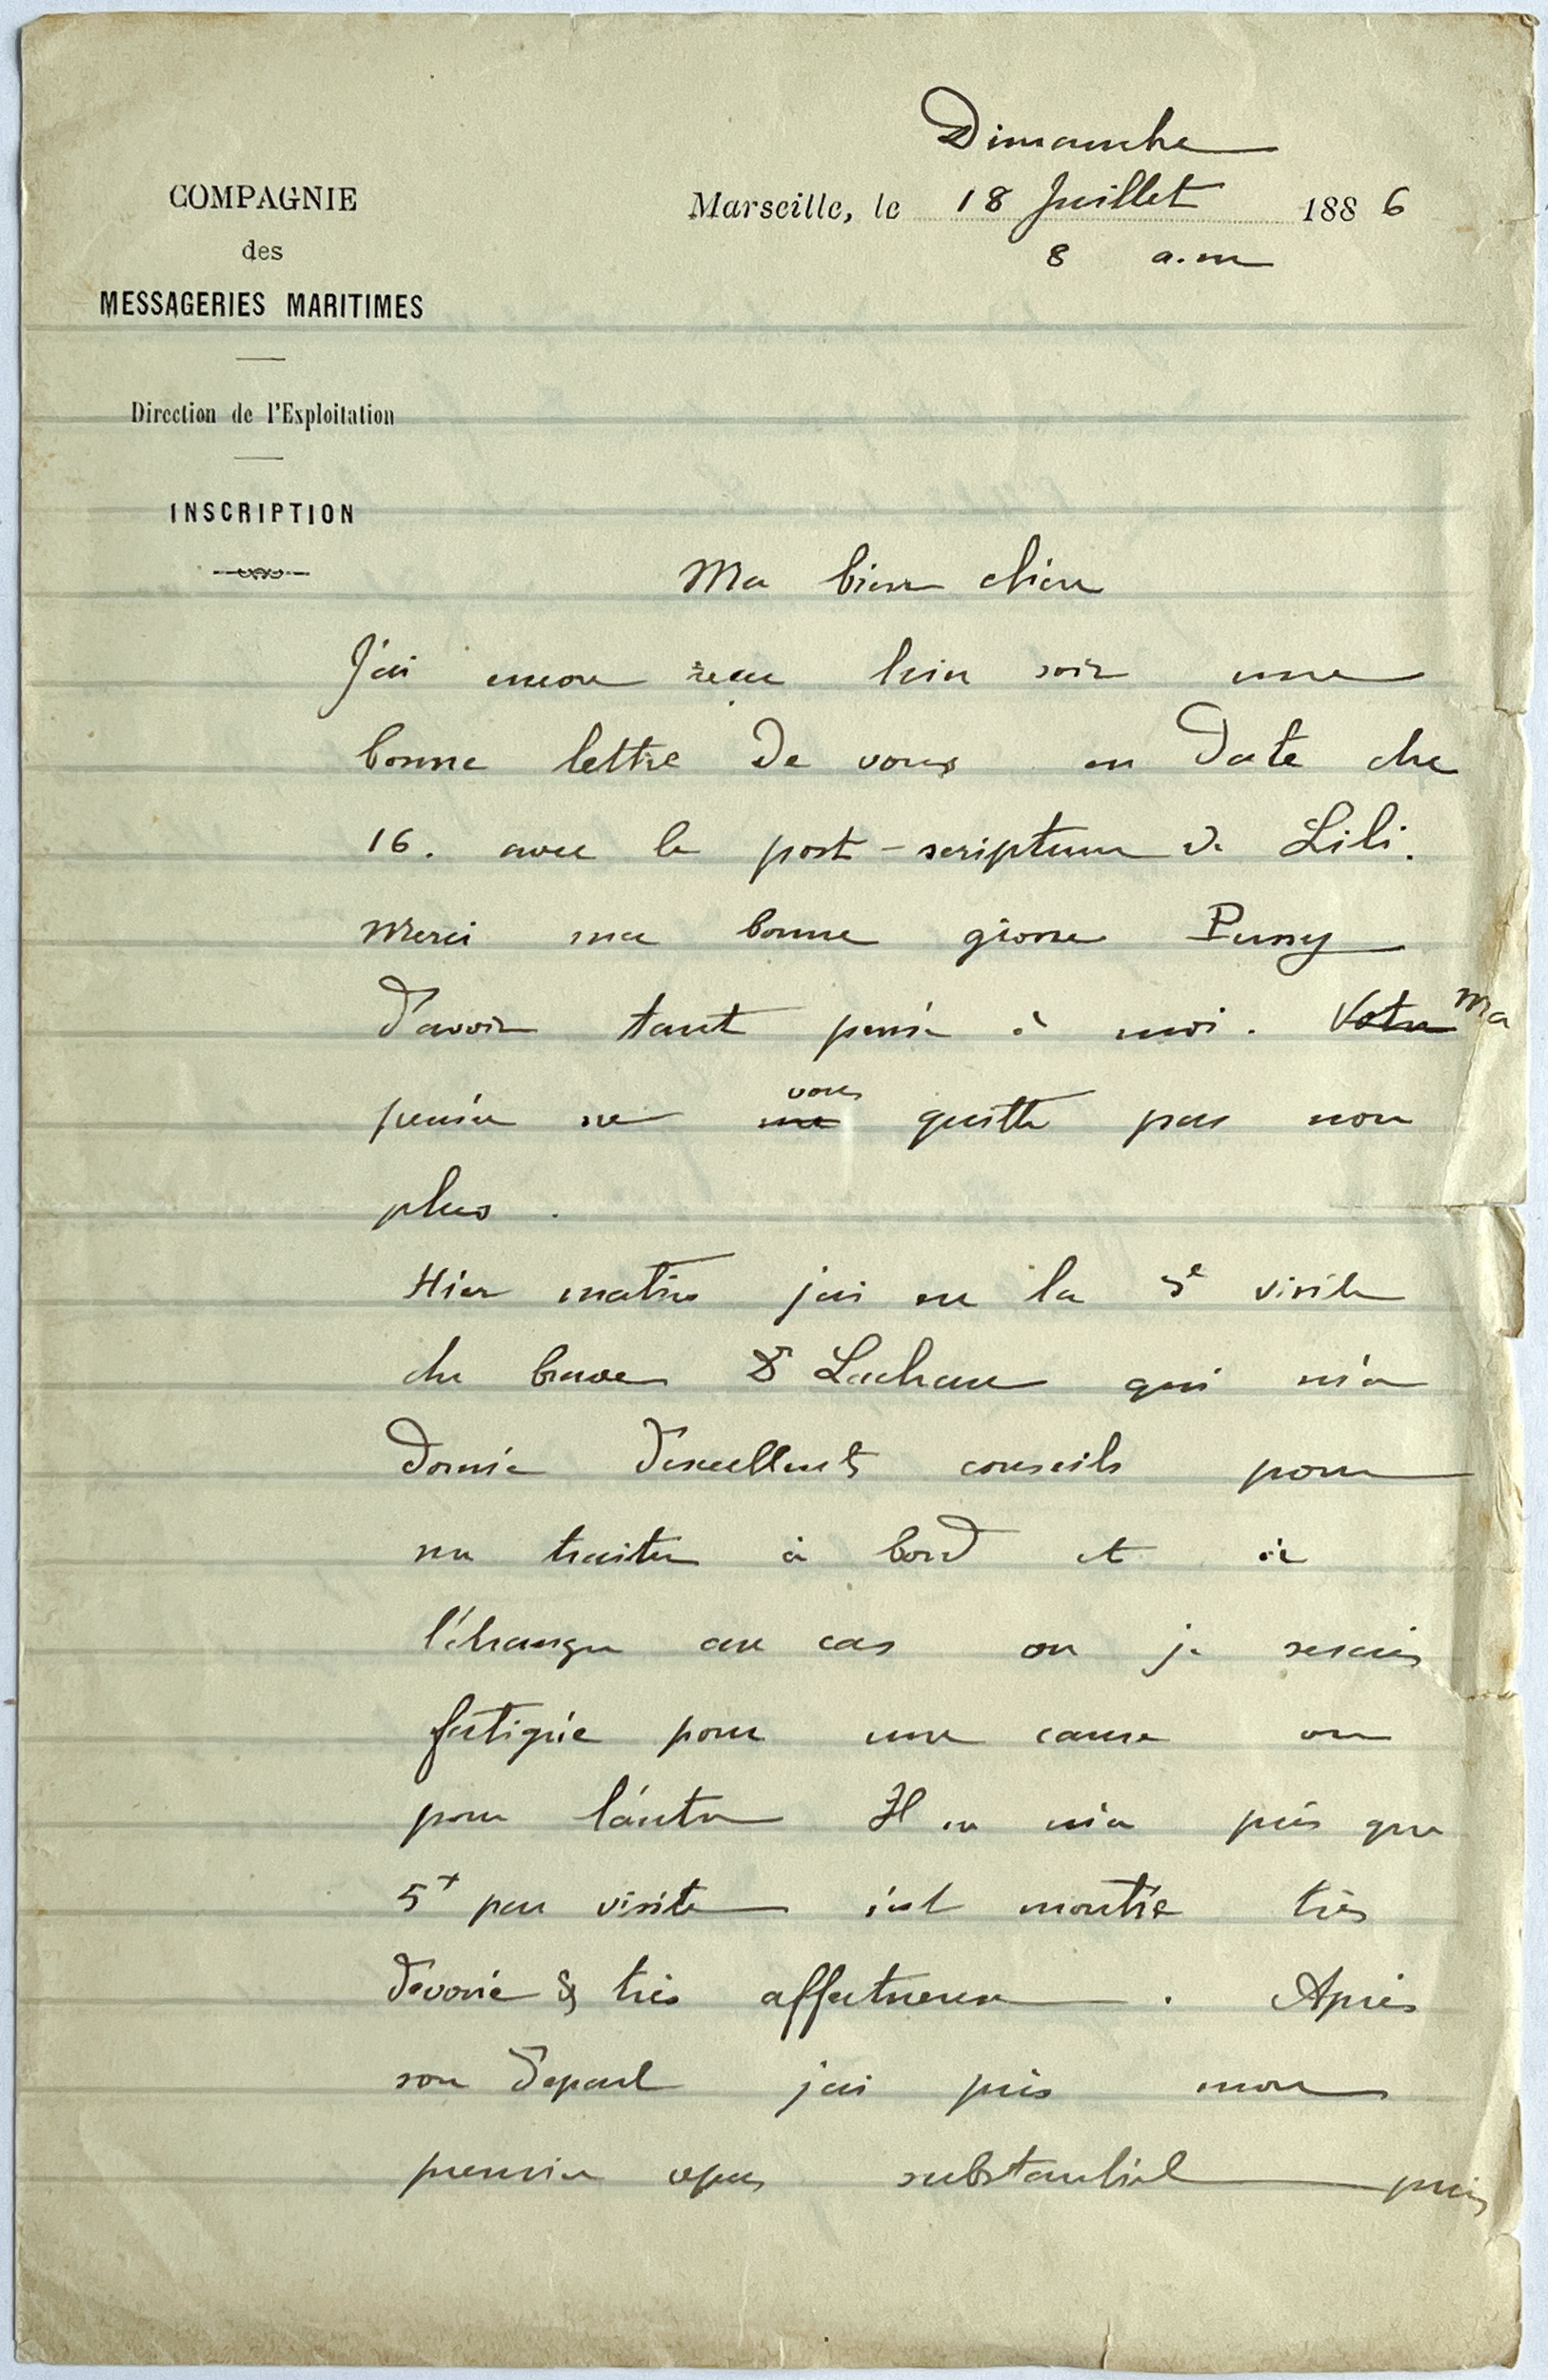 Dimanche
COMPAGNIE
des
MESSAGERIES MARITIMES
Direction de l'Exploitation
INSCRIPTION
Marseille, le 18 Juillet 1886
8 a.m
Ma bien chère
J'ai encore reçu hier soir une
bonne lettre de vous en date du
16. avec le post-scriptum de Lili.
Merci ma bonne grosse
d'avoir tant pensé à moi. Votre Ma
pensée ne me vous quitte pas non
plus.
Hier matin j'ai eu la 5e visite
du brave Dr Lachaux qui m'a
donné d'excellents conseils pour
me traiter à bord et à
l'étranger au cas ou je serais
fatigué pour une cause ou
pour l'autre Il ne m'a pris que
5+ par visite s'est montré très
dévoué & très affectueux. Après
son départ j'ai pris mon
premier repas substantiel puis